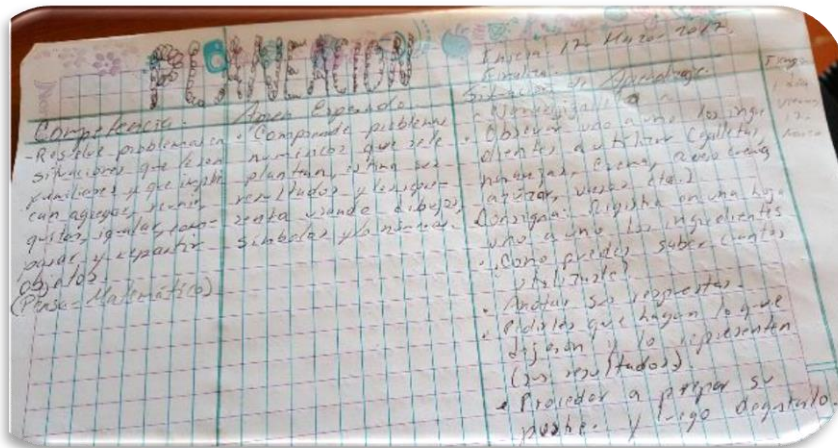 PLANEACION
Inicia: 17 Marzo 2017.
Finaliza:
Competencia.
- Resuelve problemas en
situaciones que le son
familiares y que impli
can agregar, reunir,
quitar, igualar, com-
parar y repartir
objetos.
(Pensa- Matemático)
Apren Esperado
• Comprende problemas
numéricos que se le
plantean, estima sus
resultados y los repre-
senta usando dibujos,
símbolos y/o números.
Situación de Aprendizaje.
• Observar uno a uno los ingre
dientes a utilizar (galletas,
naranjas, crema,
azúcar, vasos etc.)
Consigna: Registra en una hoja
uno a uno los ingredientes
• Como puedes saber cuantos
utilizaste?
• Anotar sus respuestas.
• Pedirles que hagan lo que
dijeron y lo representen
(sus resultados).
• Proceder a prepar su
postre. y luego degustarlo.
1 día
viernes
17
Marzo